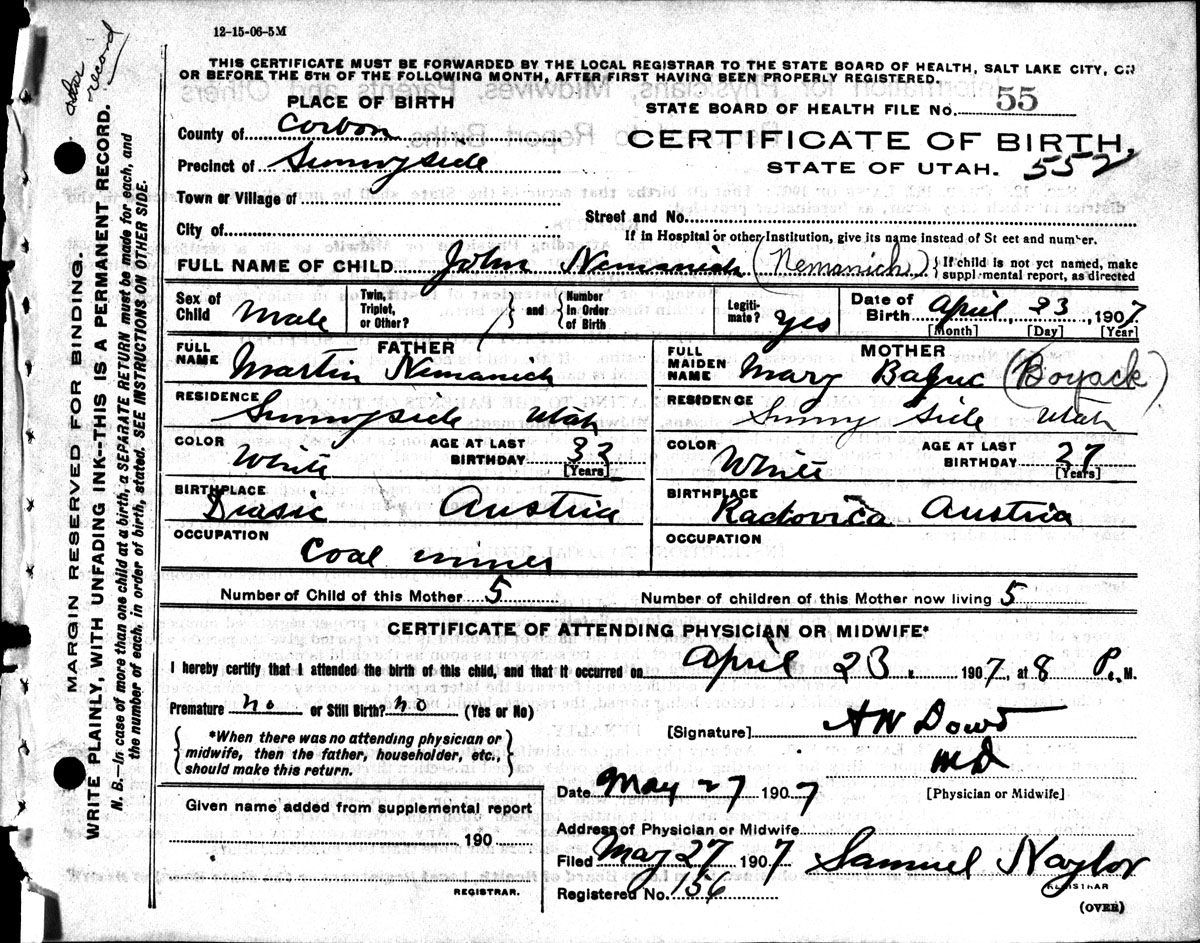 12-15-06-5M
THIS CERTIFICATE MUST BE FORWARDED BY THE LOCAL REGISTRAR TO THE STATE BOARD OF HEALTH, SALT LAKE CITY, ON
OR BEFORE THE 5TH OF THE FOLLOWING MONTH, AFTER FIRST HAVING BEEN PROPERLY REGISTERED.
PLACE OF BIRTH
County of Corbon
Precinct of Sunnyside
Town or Village of
City of
STATE BOARD OF HEALTH FILE No. 55
CERTIFICATE OF BIRTH.
STATE OF UTAH. 552
Street and No.
If in Hospital or other Institution, give its name instead of St eet and number.
FULL NAME OF CHILD John Nemanich (Nemanich) { If child is not yet named, make
suppl mental report, as directed
Sex of Child Male
Twin, Triplet, or Other? } and { Number In Order of Birth
Legiti-mate? yes
Date of Birth April 23 1907
[Month] [Day] [Year]
FATHER
FULL NAME Martin Nemanich
RESIDENCE Sunnyside Utah
COLOR White AGE AT LAST BIRTHDAY 33 [Years]
BIRTHPLACE Drasic Austria
OCCUPATION Coal miner
MOTHER
FULL MAIDEN NAME Mary Bajuc (Boyack)
RESIDENCE Sunny Side Utah
COLOR White AGE AT LAST BIRTHDAY 27 [Years]
BIRTHPLACE Radovica Austria
OCCUPATION
Number of Child of this Mother 5 Number of children of this Mother now living 5
CERTIFICATE OF ATTENDING PHYSICIAN OR MIDWIFE*
I hereby certify that I attended the birth of this child, and that it occurred on April 23, 1907, at 8 P. M.
Premature no or Still Birth? no (Yes or No)
{ *When there was no attending physician or
midwife, then the father, householder, etc.,
should make this return. }
[Signature] A W Dowd
MD
Date May 27 1907 [Physician or Midwife]
Given name added from supplemental report
190
REGISTRAR.
Address of Physician or Midwife
Filed May 27 1907 Samuel Naylor
REGISTRAR
Registered No. 156
(OVER)
record
MARGIN RESERVED FOR BINDING.
WRITE PLAINLY, WITH UNFADING INK—THIS IS A PERMANENT RECORD.
N. B.—In case of more than one child at a birth, a SEPARATE RETURN must be made for each, and
the number of each, in order of birth, stated. SEE INSTRUCTIONS ON OTHER SIDE.